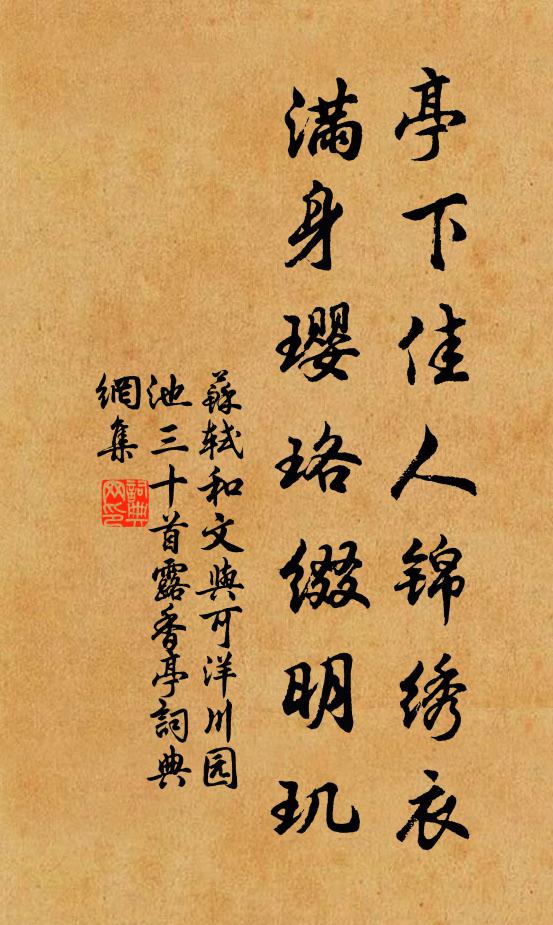 亭下佳人锦绣衣
满身璎珞缀明玑
蘇轼和文與可洋川园
池三十首露香亭詞典
網集
詞典网印